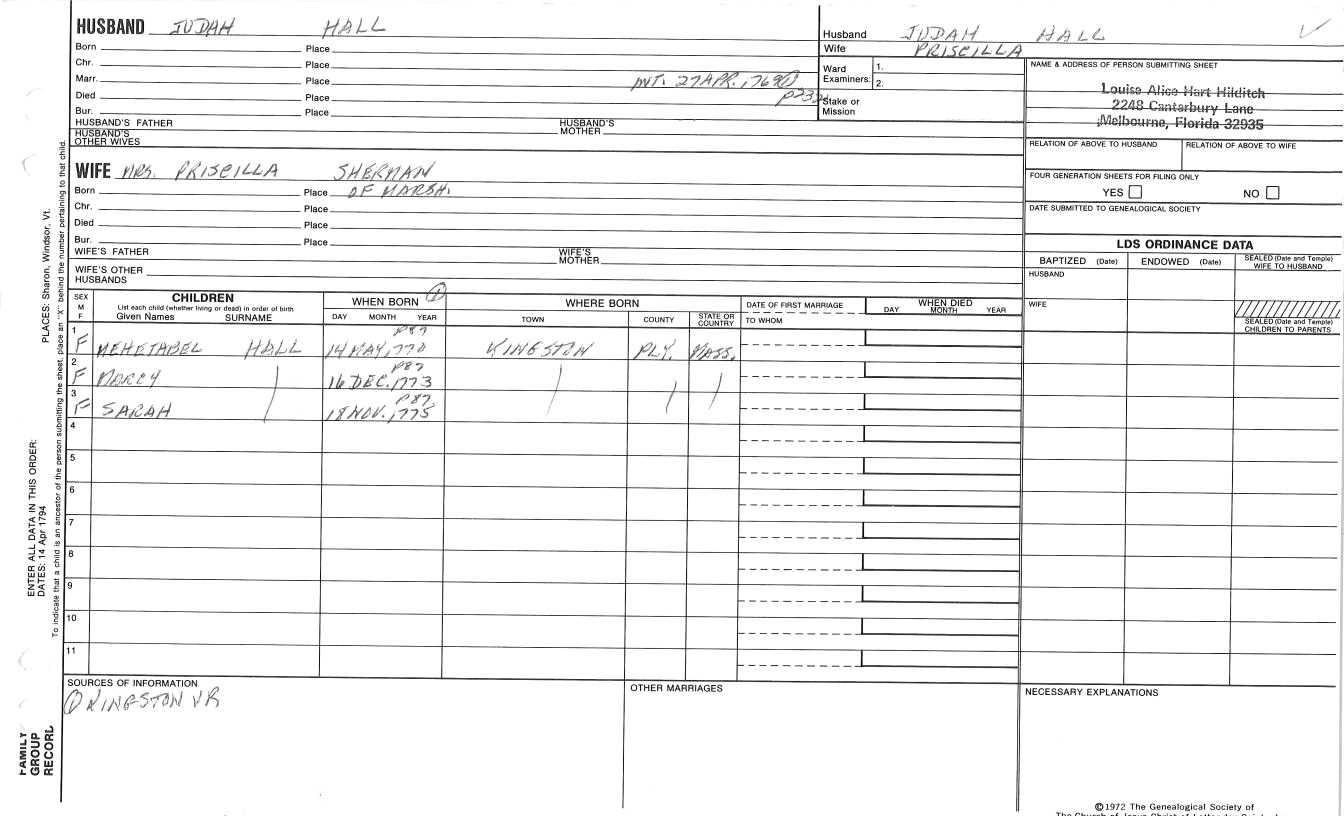 HUSBAND JUDAH HALL
Born Place
Chr. Place
Marr. Place INT. 27 APR. 1769 ①
Died Place p232
Bur. Place
HUSBAND'S FATHER HUSBAND'S MOTHER
HUSBAND'S OTHER WIVES
Husband JUDAH HALL
Wife PRISCILLA
Ward Examiners: 1.
2.
Stake or Mission
NAME & ADDRESS OF PERSON SUBMITTING SHEET
Louise Alice Hart Hilditch
2248 Cantarbury Lane
Melbourne, Florida 32935
RELATION OF ABOVE TO HUSBAND RELATION OF ABOVE TO WIFE
FOUR GENERATION SHEETS FOR FILING ONLY
YES NO
DATE SUBMITTED TO GENEALOGICAL SOCIETY
WIFE MRS. PRISCILLA SHERMAN
Born Place OF MARSH.
Chr. Place
Died Place
Bur. Place
WIFE'S FATHER WIFE'S MOTHER
WIFE'S OTHER HUSBANDS
LDS ORDINANCE DATA
BAPTIZED (Date) ENDOWED (Date) SEALED (Date and Temple) WIFE TO HUSBAND
HUSBAND
WIFE
SEALED (Date and Temple) CHILDREN TO PARENTS
SEX M F
CHILDREN
List each child (whether living or dead) in order of birth
Given Names SURNAME
WHEN BORN ①
DAY MONTH YEAR
WHERE BORN
TOWN COUNTY STATE OR COUNTRY
DATE OF FIRST MARRIAGE
TO WHOM
WHEN DIED
DAY MONTH YEAR
p87
1 F MEHETABEL HALL 14 MAY, 1770 KINGSTON PLY. MASS.
p87
2 F MARCY 16 DEC. 1773
p87
3 F SARAH 18 NOV. 1775
4
5
6
7
8
9
10
11
SOURCES OF INFORMATION
① KINGSTON VR
OTHER MARRIAGES
NECESSARY EXPLANATIONS
©1972 The Genealogical Society of
The Church of Jesus Christ of Latter-day Saints
ENTER ALL DATA IN THIS ORDER:
DATES: 14 Apr 1794
PLACES: Sharon, Windsor, Vt.
To indicate that a child is an ancestor of the person submitting the sheet, place an "X" behind the number pertaining to that child.
FAMILY
GROUP
RECORD